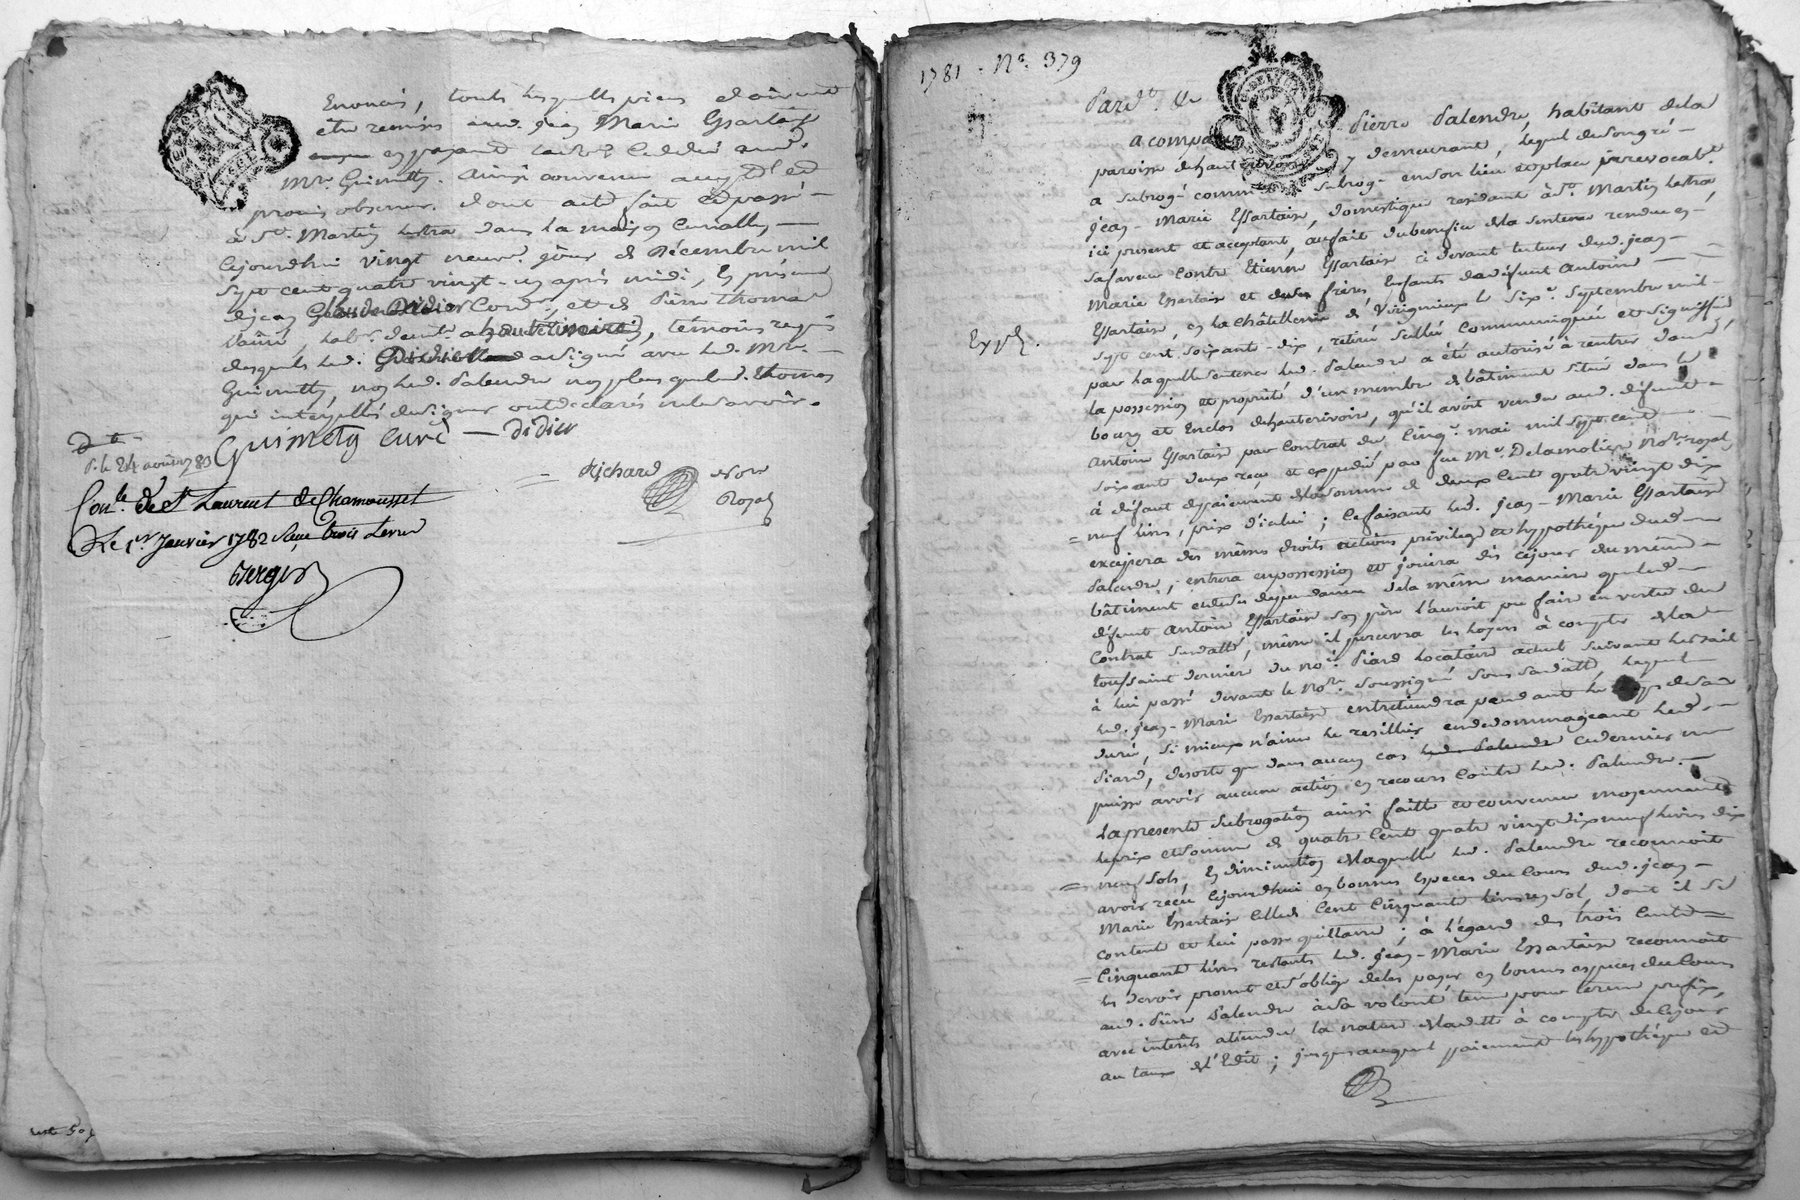 Enoncés, toutes lesquelles pieces doivent
être remises aud. jean Marie Essartaise
en payant
Mre. Guimetty. Ainsi convenu accepté et
promis observer. dont acte fait et passé
à St. Martin Lestra dans la maison Curialle,
Cejourdhui vingt neuf jour de Décembre mil
sept cent quatre vingt-un après midi, En présence
de jean Claude Didier Cord.r, et de Pierre thomas
hab. demt. a hauterivoire, témoins requis
desquels led. Didier a signé avec led. Mre.
Guimetty, non led. Palendre non plus que led. thomas
qui interpellés de signer ont declarés ne le savoir.
Guimety curé — Didier
D. le 24 août 1783
Richard Nore
Royal
Conle. de St Laurent de Chamousset
Le 1er Janvier 1782 Reçu trois Livres
Verger
reste 50 s
1781. No. 379
Pard.t &c
a comparu Pierre Palendre, habitant de la
paroisse dhauterivoire y demeurant, lequel de son gré
a subrogé comme subroge en son lieu et place jrrevocabt.
jean-Marie Essartaise, domestique residant à St. Martin Lestra
ici present et acceptant, au fait du benefice de la sentence rendue en
sa faveur Contre Etienne Essartaise ci devant tuteur dud. jean-
Marie Essartaise et de ses frères Enfants de défunt Antoine
Essartaise, en la châtellenie de Virigneux le sixe. septembre mil
Expd.
sept cent soixante-dix, retirée scellée Communiquée et signiffié
par laquelle sentence led. Palendre a été autorisé à rentrer dans
la possession et proprieté d'un membre de bâtiment situé dans le
bourg et Enclos dhauterivoire, qu'il avoit vendu aud. défunt
Antoine Essartaise par Contrat du Cinqe. mai mil sept cent
soixante deux reçu et expedié par feu Me. Delamolière Nore. royal
à défaut de paiement de la somme de deux Cent quatre vingt dix
neuf livres, prix d'icelui; Ce faisant led. jean-Marie Essartaise
exercera des mêmes droits actions privilege et hyppothéque dud.
Palendre, entrera en possession et jouira dès cejour du même
bâtiment et de ses dependances de la même maniere que led.
défunt Antoine Essartaise son père l'auroit pu faire en vertu du
Contrat susdatté, même il percevra les loyers à compter de la
toussaint derniere du no. Piard Locataire actuel suivant le bail
à lui passé devant le Nore. soussigné sous sa datte, lequel
led. jean-Marie Essartaise entretiendra pendant le temps de sa
durée, si mieux n'aime le resillier en dedommageant led.
Piard, desorte que dans aucun cas led. Palendre ce dernier ne
puisse avoir aucune action en recours contre led. Palendre.
La presente subrogation ainsi faitte et convenue moyennant
le prix et somme de quatre Cent quatre vingt dix neuf livres dix
neuf sols, En diminution de laquelle led. Palendre reconnoit
avoir reçu Cejourdhui en bonnes Especes du Cours dud. jean-
Marie Essartaise Celle de Cent Cinquante livres un sol, dont il se
content et lui passe quittance; à l'égard des trois Cents
Cinquante livres restants led. jean-Marie Essartaise reconnoit
les devoir promet et s'oblige de les payer en bonnes especes du Cours
aud. Pierre Palendre à sa volonté tenue pour terme prefix,
avec interêts attendu la nature de la dette à compter de Cejour
au taux de l'Edit; jusques auquel paiement les hyppothéque et